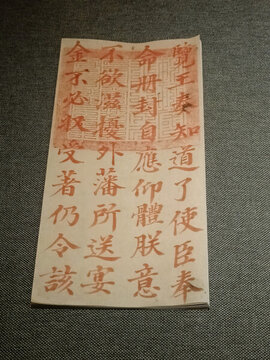 覽王奏知道了使臣奉
命册封自應仰體朕意
不欲滋擾外藩所送宴
金不必收受著仍令該